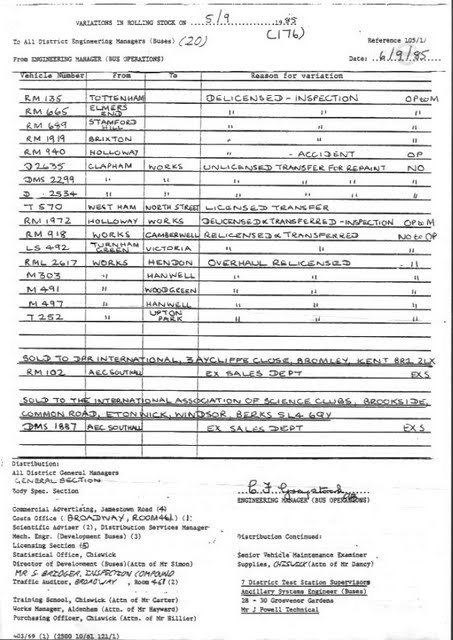 VARIATIONS IN ROLLING STOCK ON 5/9 1985
(176)
To All District Engineering Managers (Buses) (20) Reference 105/1/
From ENGINEERING MANAGER (BUS OPERATIONS) Date: 6/9/85
Vehicle Number From To Reason for variation
RM 135 TOTTENHAM DELICENSED - INSPECTION OP to M
RM 665 ELMERS END " " "
RM 689 STAMFORD HILL " " "
RM 1919 BRIXTON " " "
RM 940 HOLLOWAY " - ACCIDENT OP
D2635 CLAPHAM WORKS UNLICENSED TRANSFER FOR REPAINT NO
DMS 2299 " " " " " "
D 2534 " " " " " "
T 570 WEST HAM NORTH STREET LICENSED TRANSFER
RM 1972 HOLLOWAY WORKS DELICENSED & TRANSFERRED - INSPECTION OP to M
RM 918 WORKS CAMBERWELL RELICENSED & TRANSFERRED NO to OP
LS 492 TURNHAM GREEN VICTORIA " " "
RML 2617 WORKS HENDON OVERHAUL RELICENSED "
M303 " HANWELL " " "
M 491 " WOOD GREEN " " "
M 497 " HANWELL " " "
T 252 " UPTON PARK " " "
SOLD TO DPR INTERNATIONAL, 3 AYCLIFFE CLOSE, BROMLEY, KENT BR1 2LX
RM 102 AEC SOUTHALL EX SALES DEPT EXS
SOLD TO THE INTERNATIONAL ASSOCIATION OF SCIENCE CLUBS, BROOKSIDE,
COMMON ROAD, ETON WICK, WINDSOR, BERKS SL4 6QY
DMS 1887 AEC SOUTHALL EX SALES DEPT EXS
Distribution:
All District General Managers
GENERAL SECTION
Body Spec. Section
ENGINEERING MANAGER (BUS OPERATIONS)
Commercial Advertising, Jamestown Road (4)
Costs Office (BROADWAY, ROOM 461) (1)
Scientific Adviser (2), Distribution Services Manager
Mech. Engr. (Development Buses) (3) Distribution Continued:
Licensing Section (5)
Statistical Office, Chiswick Senior Vehicle Maintenance Examiner
Director of Development (Buses)(Attn of Mr Simon) Supplies, CHISWICK (Attn of Mr Dancy)
MR S. BRIDGER, INSPECTION COMPOUND
Traffic Auditor, BROADWAY, Room 461 (1) 7 District Test Station Supervisors
Ancillary Systems Engineer (Buses)
Training School, Chiswick (Attn of Mr Carter) 28 - 30 Grosvenor Gardens
Works Manager, Aldenham (Attn. of Mr Hayward) Mr J Powell Technical
Purchasing Officer, Chiswick (Attn of Mr Hillier)
403/69 (1) (2500 10/81 121/1)